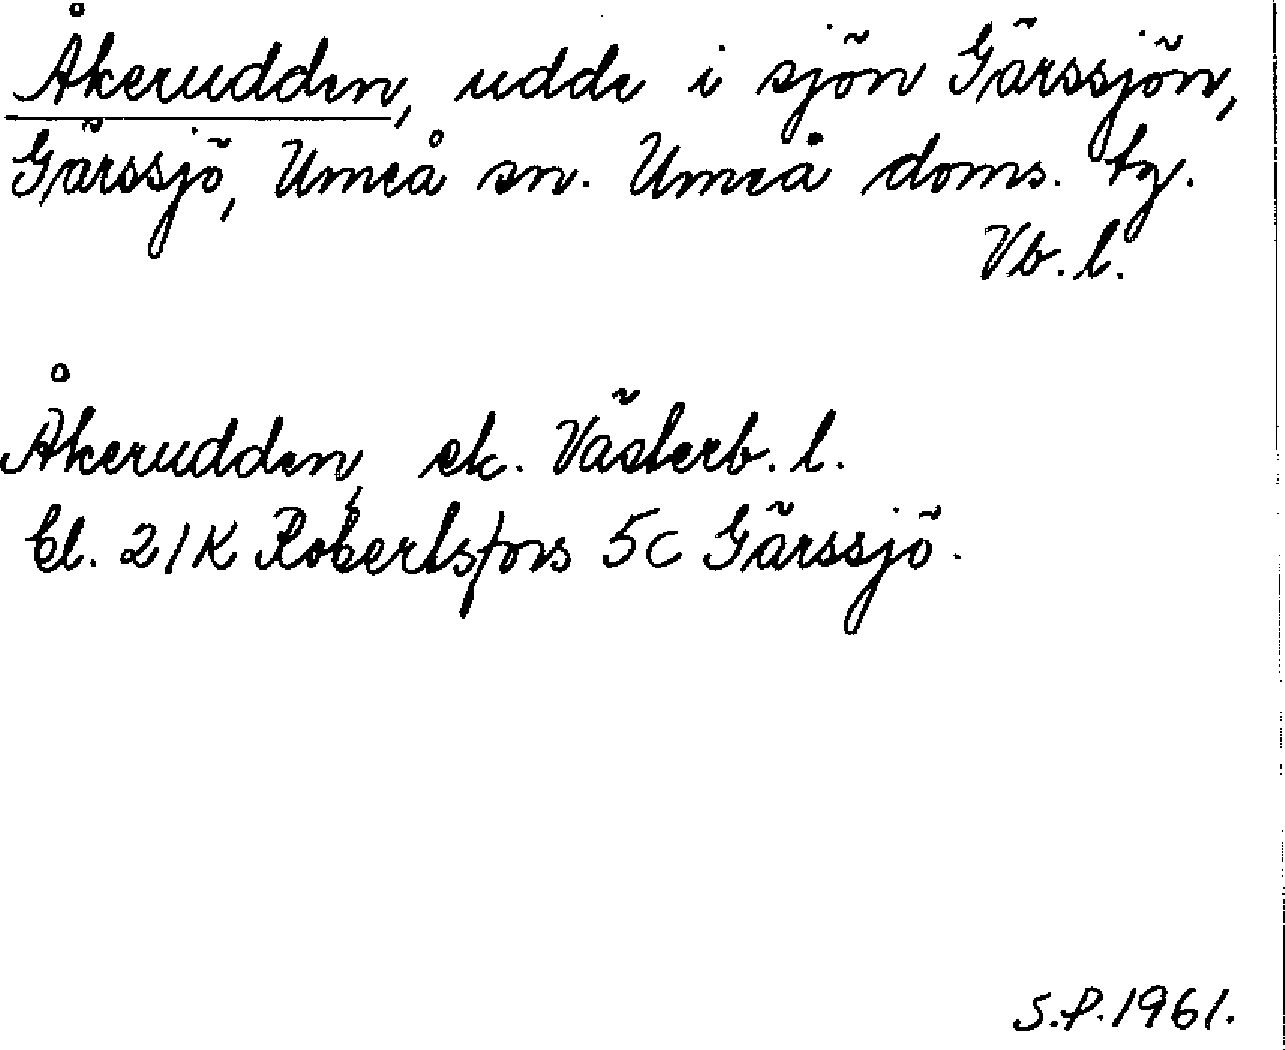 Åkerudden, udde i sjön Gärssjön,
Gärssjö, Umeå sn. Umeå doms. tg.
Vb. l.
Åkerudden, ek. Västerb. l.
bl. 21K Robertsfors 5c Gärssjö.
S.P. 1961.